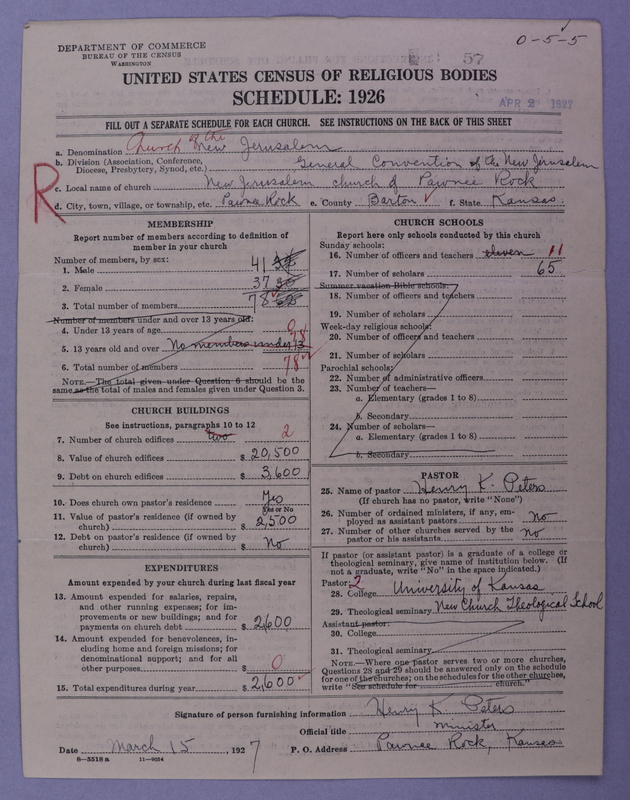 0-5-5
DEPARTMENT OF COMMERCE
BUREAU OF THE CENSUS
WASHINGTON
57
UNITED STATES CENSUS OF RELIGIOUS BODIES
SCHEDULE: 1926
APR 2 1927
FILL OUT A SEPARATE SCHEDULE FOR EACH CHURCH. SEE INSTRUCTIONS ON THE BACK OF THIS SHEET
a. Denomination Church of the New Jerusalem
b. Division (Association, Conference, Diocese, Presbytery, Synod, etc.) General Convention of the New Jerusalem
R
c. Local name of church New Jerusalem church of Pawnee Rock
d. City, town, village, or township, etc. Pawnee Rock e. County Barton f. State Kansas.
MEMBERSHIP
Report number of members according to definition of
member in your church
Number of members, by sex:
1. Male 41
2. Female 37
3. Total number of members 78
Number of members under and over 13 years old:
4. Under 13 years of age 0
5. 13 years old and over No members under 13 78
6. Total number of members 78
NOTE.—The total given under Question 6 should be the
same as the total of males and females given under Question 3.
CHURCH BUILDINGS
See instructions, paragraphs 10 to 12
7. Number of church edifices two 2
8. Value of church edifices $ 20,500
9. Debt on church edifices $ 3,600
10. Does church own pastor's residence Yes
Yes or No
11. Value of pastor's residence (if owned by
church) $ 2,500
12. Debt on pastor's residence (if owned by
church) $ No
EXPENDITURES
Amount expended by your church during last fiscal year
13. Amount expended for salaries, repairs,
and other running expenses; for im-
provements or new buildings; and for
payments on church debt $ 2,600
14. Amount expended for benevolences, in-
cluding home and foreign missions; for
denominational support; and for all
other purposes $ 0
15. Total expenditures during year $ 2,600
CHURCH SCHOOLS
Report here only schools conducted by this church
Sunday schools:
16. Number of officers and teachers eleven 11
17. Number of scholars 65
Summer vacation Bible schools:
18. Number of officers and teachers
19. Number of scholars
Week-day religious schools:
20. Number of officers and teachers
21. Number of scholars
Parochial schools:
22. Number of administrative officers
23. Number of teachers—
a. Elementary (grades 1 to 8)
b. Secondary
24. Number of scholars—
a. Elementary (grades 1 to 8)
b. Secondary
PASTOR
25. Name of pastor Henry K. Peters
(If church has no pastor, write "None")
26. Number of ordained ministers, if any, em-
ployed as assistant pastors No
27. Number of other churches served by the
pastor or his assistants No
If pastor (or assistant pastor) is a graduate of a college or
theological seminary, give name of institution below. (If
not a graduate, write "No" in the space indicated.)
Pastor: 2
28. College University of Kansas
29. Theological seminary New Church Theological School
Assistant pastor:
30. College
31. Theological seminary
NOTE.—Where one pastor serves two or more churches,
Questions 28 and 29 should be answered only on the schedule
for one of the churches; on the schedules for the other churches,
write "See schedule for ... church."
Signature of person furnishing information Henry K. Peters
Official title minister
Date March 15, 1927 P. O. Address Pawnee Rock, Kansas
8—5518 a 11—9034